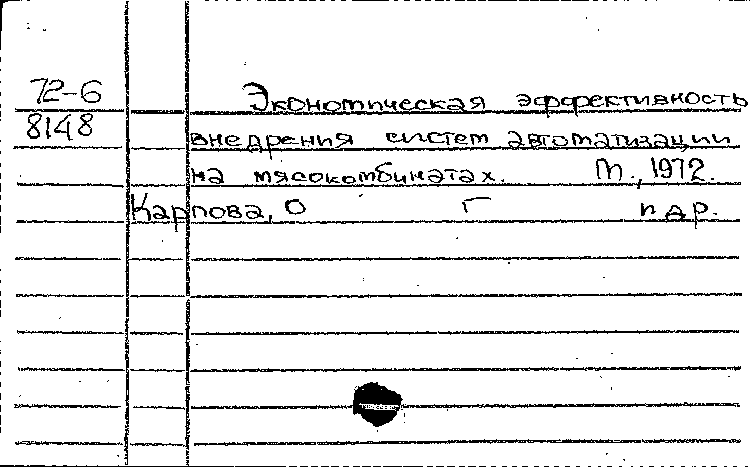 72-6
Экономическая эффективность
8148
внедрения систем автоматизации
на мясокомбинатах. М., 1972.
Карпова, О Г и др.